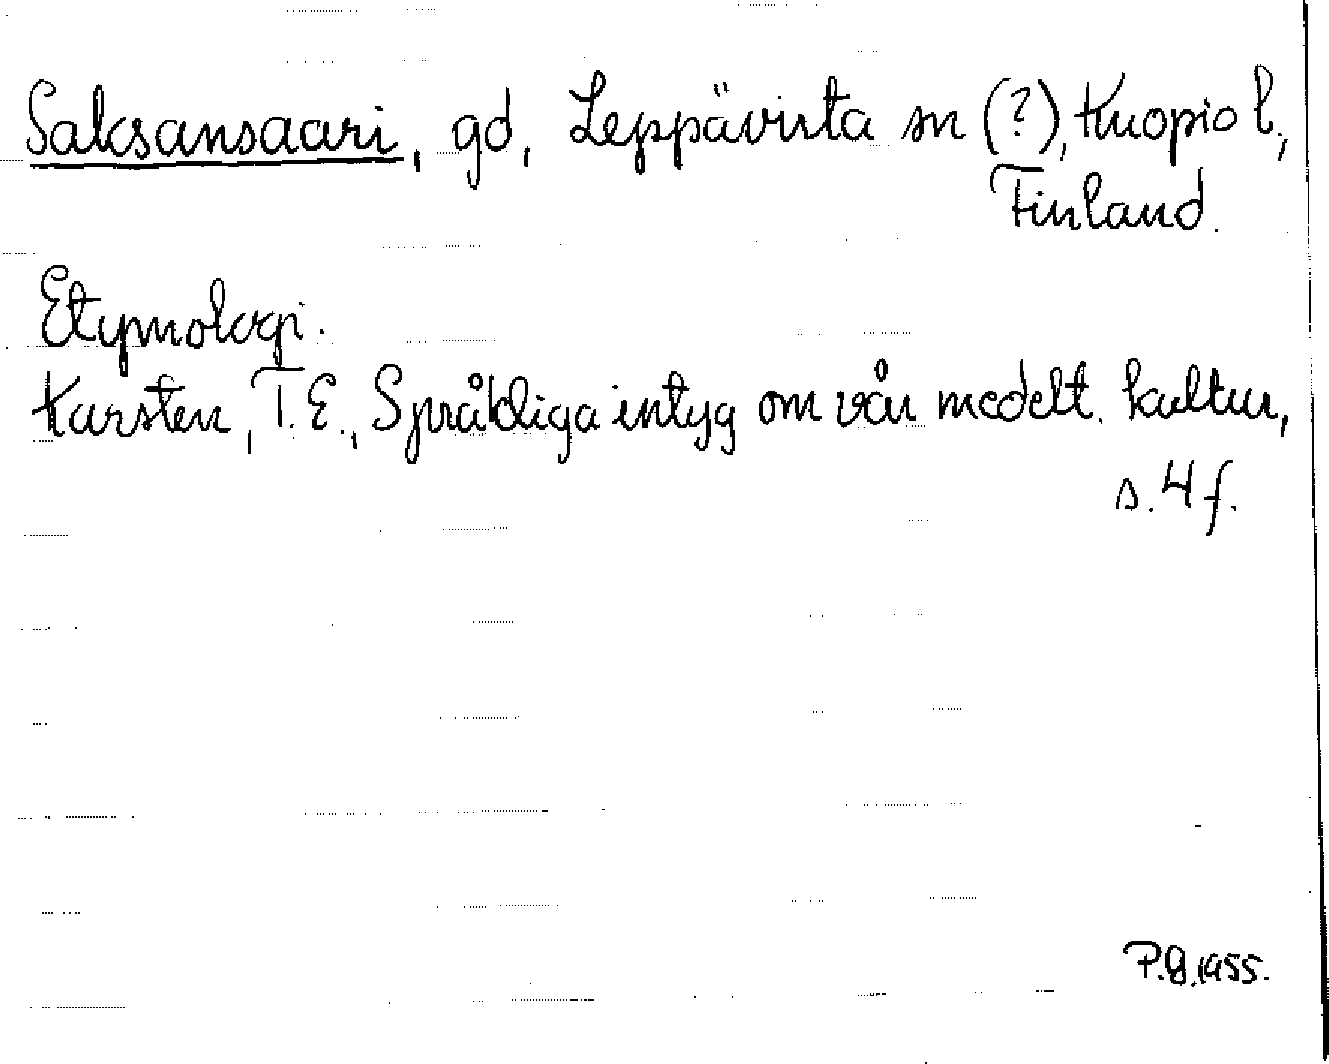 Saksansaari, gd, Leppävirta sn (?), Kuopio l,
Finland.
Etymologi.
Karsten, T.E., Språkliga intyg om vår medelt. kultur,
s. 4 f.
P.G. 1955.